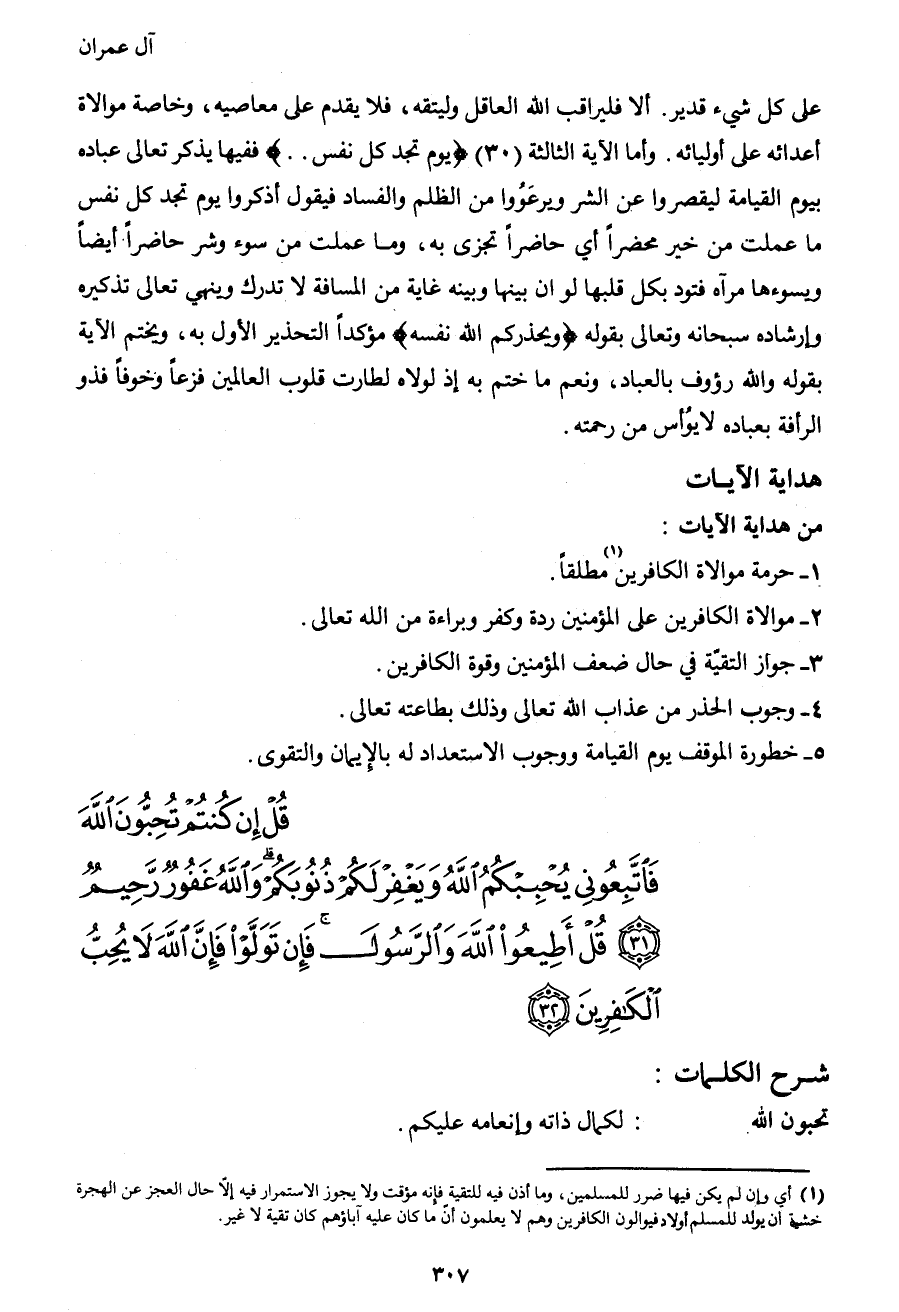 آل عمران
على كل شيء قدير. ألا فليراقب الله العاقل وليتقه، فلا يقدم على معاصيه، وخاصة موالاة
أعدائه على أوليائه. وأما الآية الثالثة (٣٠) ﴿يوم تجد كل نفس . . ﴾ ففيها يذكر تعالى عباده
بيوم القيامة ليقصروا عن الشر ويرعَوُوا من الظلم والفساد فيقول أذكروا يوم تجد كل نفس
ما عملت من خير محضراً أي حاضراً تجزى به، وما عملت من سوء وشر حاضراً أيضاً
ويسوءها مرآه فتود بكل قلبها لو ان بينها وبينه غاية من المسافة لا تدرك وينهي تعالى تذكيره
وإرشاده سبحانه وتعالى بقوله ﴿ويحذركم الله نفسه﴾ مؤكداً التحذير الأول به، ويختم الآية
بقوله والله رؤوف بالعباد، ونعم ما ختم به إذ لولاه لطارت قلوب العالمين فزعاً وخوفاً فذو
الرأفة بعباده لا يوُأس من رحمته.
هداية الآيـات
من هداية الآيات :
١ـ حرمة موالاة الكافرين(١) مطلقاً.
٢ـ موالاة الكافرين على المؤمنين ردة وكفر وبراءة من الله تعالى.
٣ـ جواز التقيّة في حال ضعف المؤمنين وقوة الكافرين.
٤ـ وجوب الحذر من عذاب الله تعالى وذلك بطاعته تعالى.
٥ـ خطورة الموقف يوم القيامة ووجوب الاستعداد له بالإيمان والتقوى.
قُلْ إِن كُنتُمْ تُحِبُّونَ ٱللَّهَ
فَٱتَّبِعُونِي يُحْبِبْكُمُ ٱللَّهُ وَيَغْفِرْ لَكُمْ ذُنُوبَكُمْ ۗ وَٱللَّهُ غَفُورٌ رَّحِيمٌ
﴿٣١﴾ قُلْ أَطِيعُوا۟ ٱللَّهَ وَٱلرَّسُولَ ۖ فَإِن تَوَلَّوْا۟ فَإِنَّ ٱللَّهَ لَا يُحِبُّ
ٱلْكَٰفِرِينَ ﴿٣٢﴾
شـرح الكلـمات :
تحبون الله : لكمال ذاته وإنعامه عليكم.
(١) أي وإن لم يكن فيها ضرر للمسلمين، وما أذن فيه للتقية فإنه مؤقت ولا يجوز الاستمرار فيه إلّا حال العجز عن الهجرة
خشية أن يولد للمسلم أولاد فيوالون الكافرين وهم لا يعلمون أنّ ما كان عليه آباؤهم كان تقية لا غير.
٣٠٧